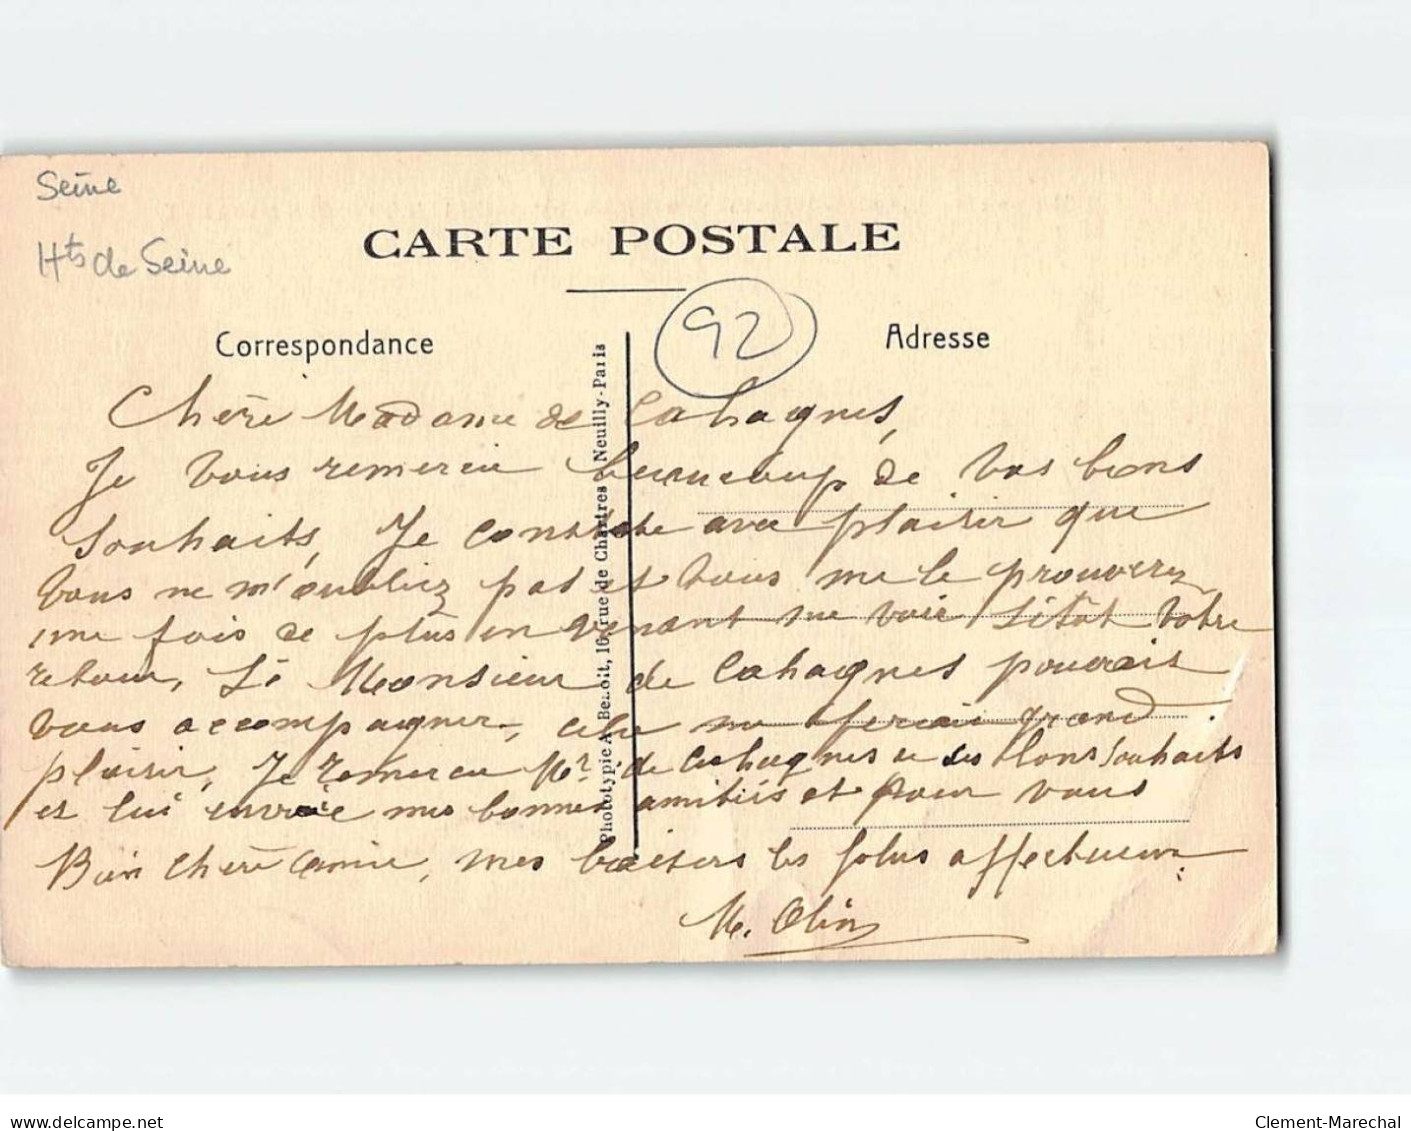 Seine
Hts de Seine
CARTE POSTALE
92
Correspondance
Adresse
Phototypie A. Benoit, 16, rue de Chartres Neuilly-Paris
Chère Madame de Cahagnes,
Je vous remercie beaucoup de vos bons
souhaits, Je constate avec plaisir que
vous ne m'oubliez pas et vous me le prouverez
une fois de plus en venant me voir sitôt votre
retour, Si Monsieur de Cahagnes pouvait
vous accompagner, cela me ferait grand
plaisir, Je remercie Mr. de Cahagnes de ses bons souhaits
et lui envoie mes bonnes amitiés et pour vous
Bien chère amie, mes baisers les plus affectueux.
M. Olin
www.delcampe.net
Clement-Marechal